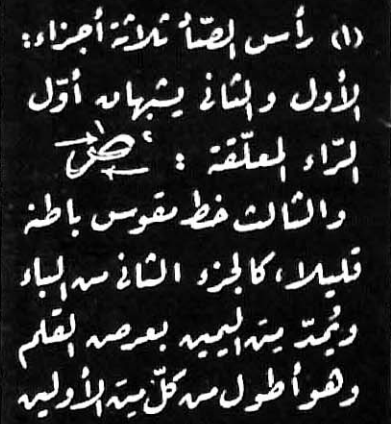 (١) رأس الصّاد ثلاثة أجزاء:
الأول والثاني يشبهان أوّل
الرّاء المعلّقة :
والثالث خط مقوس باطنه
قليلا، كالجزء الثاني من الباء
ويُمدّ من اليمين بعرض القلم
وهو أطول من كلّ من الأولين